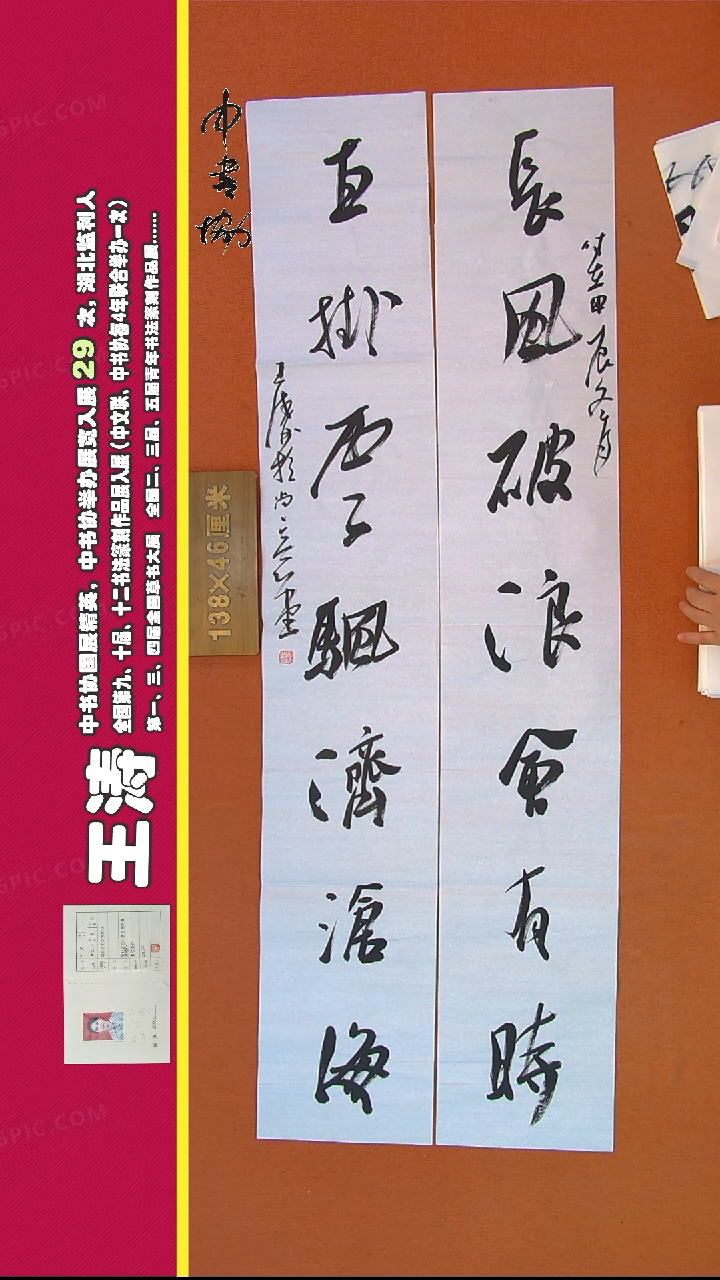 長風破浪會有時
时在甲辰冬月
直掛雲颿濟滄海
中書協
138×46厘米
王涛
中书协国展精英，中书协举办展览入展29次，湖北监利人
全国第九、十届、十二书法篆刻作品展入展（中文联、中书协每4年联合举办一次）
第一、三、四届全国草书大展 全国二、三届、五届青年书法篆刻作品展......